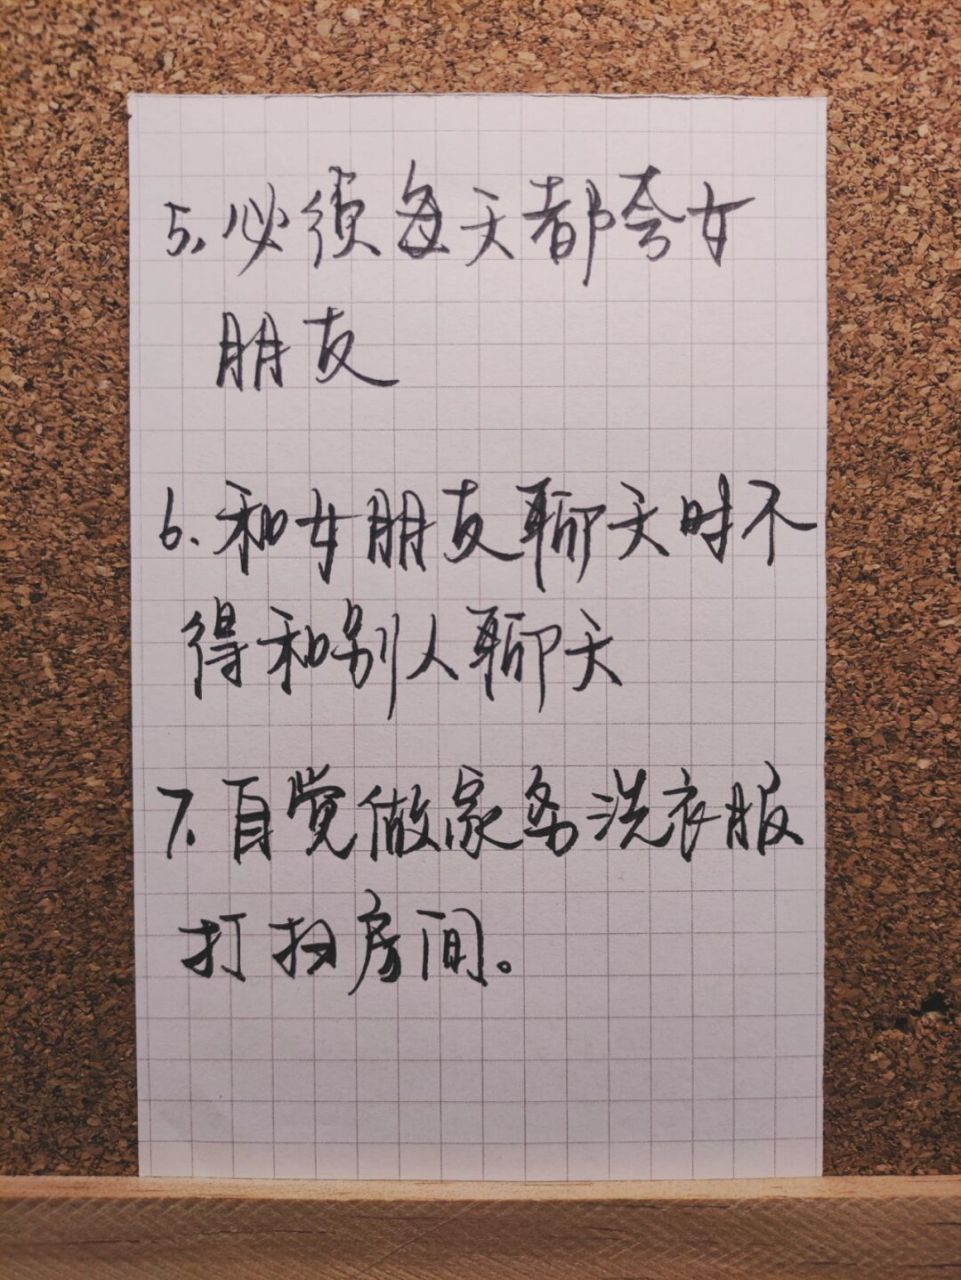 5.必须每天都夸女
朋友
6.和女朋友聊天时不
得和别人聊天
7.自觉做家务洗衣服
打扫房间。